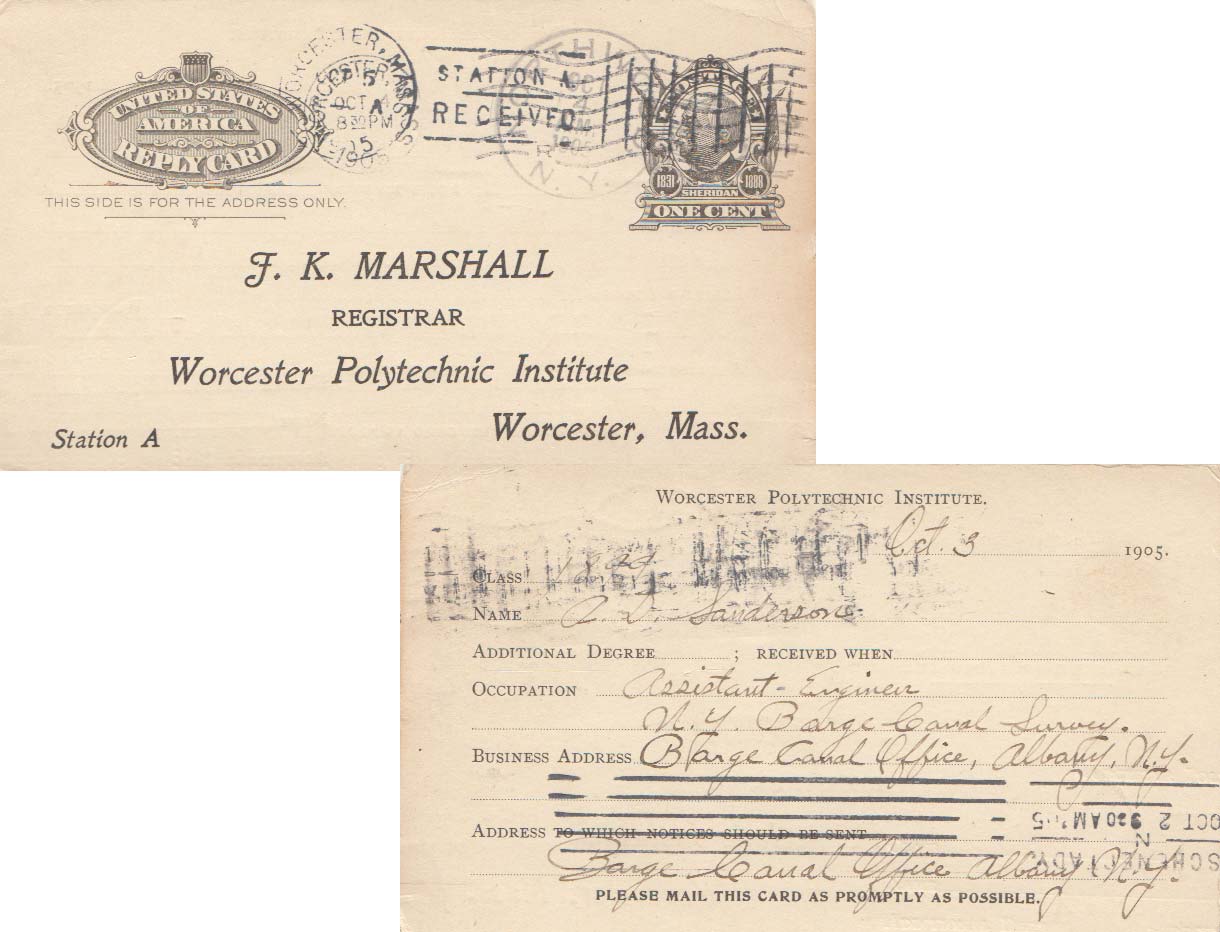 UNITED STATES
OF
AMERICA
REPLY CARD
THIS SIDE IS FOR THE ADDRESS ONLY.
WORCESTER, MASS.
OCT
8 30 PM
1905
STATION A
RECEIVED
N.Y.
POSTAGE
1831 1888
SHERIDAN
ONE CENT
F. K. MARSHALL
REGISTRAR
Worcester Polytechnic Institute
Worcester, Mass.
Station A
WORCESTER POLYTECHNIC INSTITUTE.
Oct. 3 1905.
CLASS
NAME Sanderson
ADDITIONAL DEGREE ; RECEIVED WHEN
OCCUPATION Assistant-Engineer
N.Y. Barge Canal Survey.
BUSINESS ADDRESS Barge Canal Office, Albany, N.Y.
ADDRESS TO WHICH NOTICES SHOULD BE SENT
Barge Canal Office Albany N.Y.
SCHENECTADY
OCT 2
PLEASE MAIL THIS CARD AS PROMPTLY AS POSSIBLE.